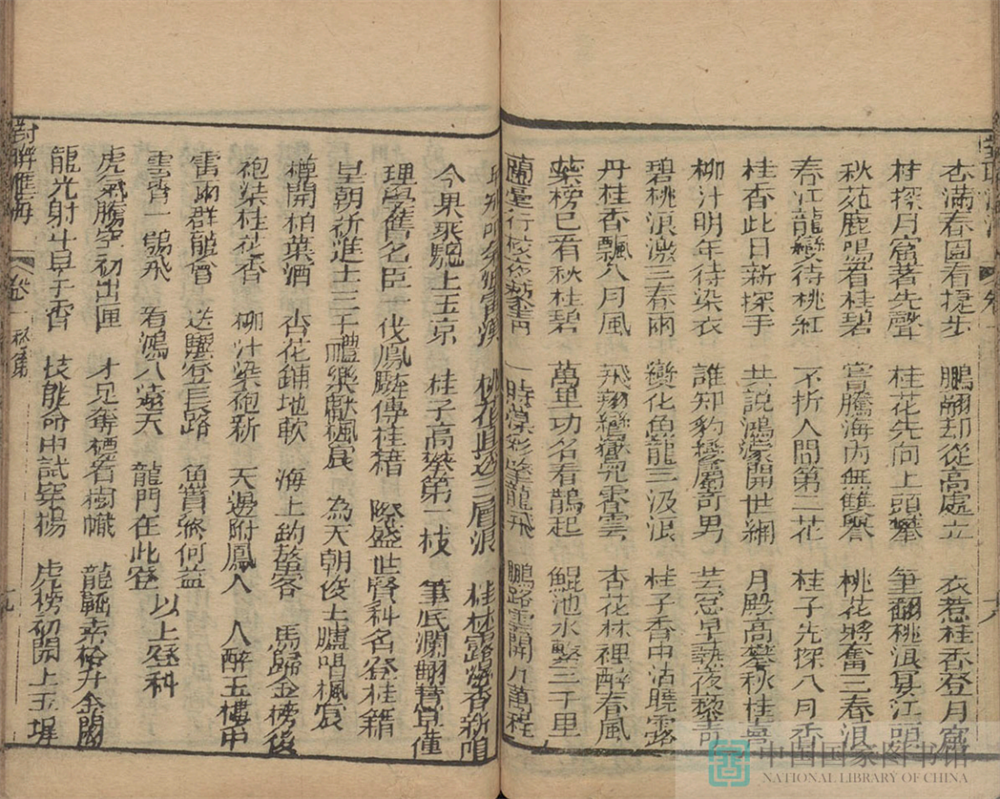 杏滿春園看捷步 鵬翩却從高處立 衣惹桂香登月窟
枝探月窟著先聲 桂花先向上頭攀 筆翻桃浪宴江頭
秋苑鹿鳴看桂碧 嘗騰海內無雙譽 桃花將奮三春浪
春江龍變待桃紅 不折人間第二花 桂子先探八月香
桂香此日新探手 共說鴻濛開世網 月殿高攀秋桂景
柳汁明年待染衣 誰知豹變屬奇男
碧桃浪激三春雨 變化魚龍三汲浪 桂子香中沾曉露
丹桂香飄八月風 飛翔鸞鳳雲 杏花林裡醉春風
蘂榜已看秋桂碧 萬里功名看鵲起 鯤池水擊三千里
蘭臺行 一時 龍飛 鵬路雲開九萬程
三層浪 桂林露 香新
今果乘驄上玉京 桂子高攀第一枝 筆底瀾翻
理學舊名臣一伐鳳麟傳桂籍 際盛世賢科名登桂籍
皇朝新進士三千禮樂獻楓宸 為天朝俊士臚唱楓宸
樽開柏葉酒 杏花鋪地軟 海上釣鰲客 馬歸金榜後
袍染桂花香 柳汁染袍新 天邊附鳳人 人醉玉樓中
雷雨群龍會 送驥登長路 魚賞終何益
雲霄一鶚飛 看鴻八遠天 龍門在此登 以上登科
虎氣騰空初出匣 才見奪標看樹幟 龍韜素裕升金闕
龍光射斗早于香 技能命中試穿楊 虎榜初開上玉墀
對聯匯海 卷一 秋集